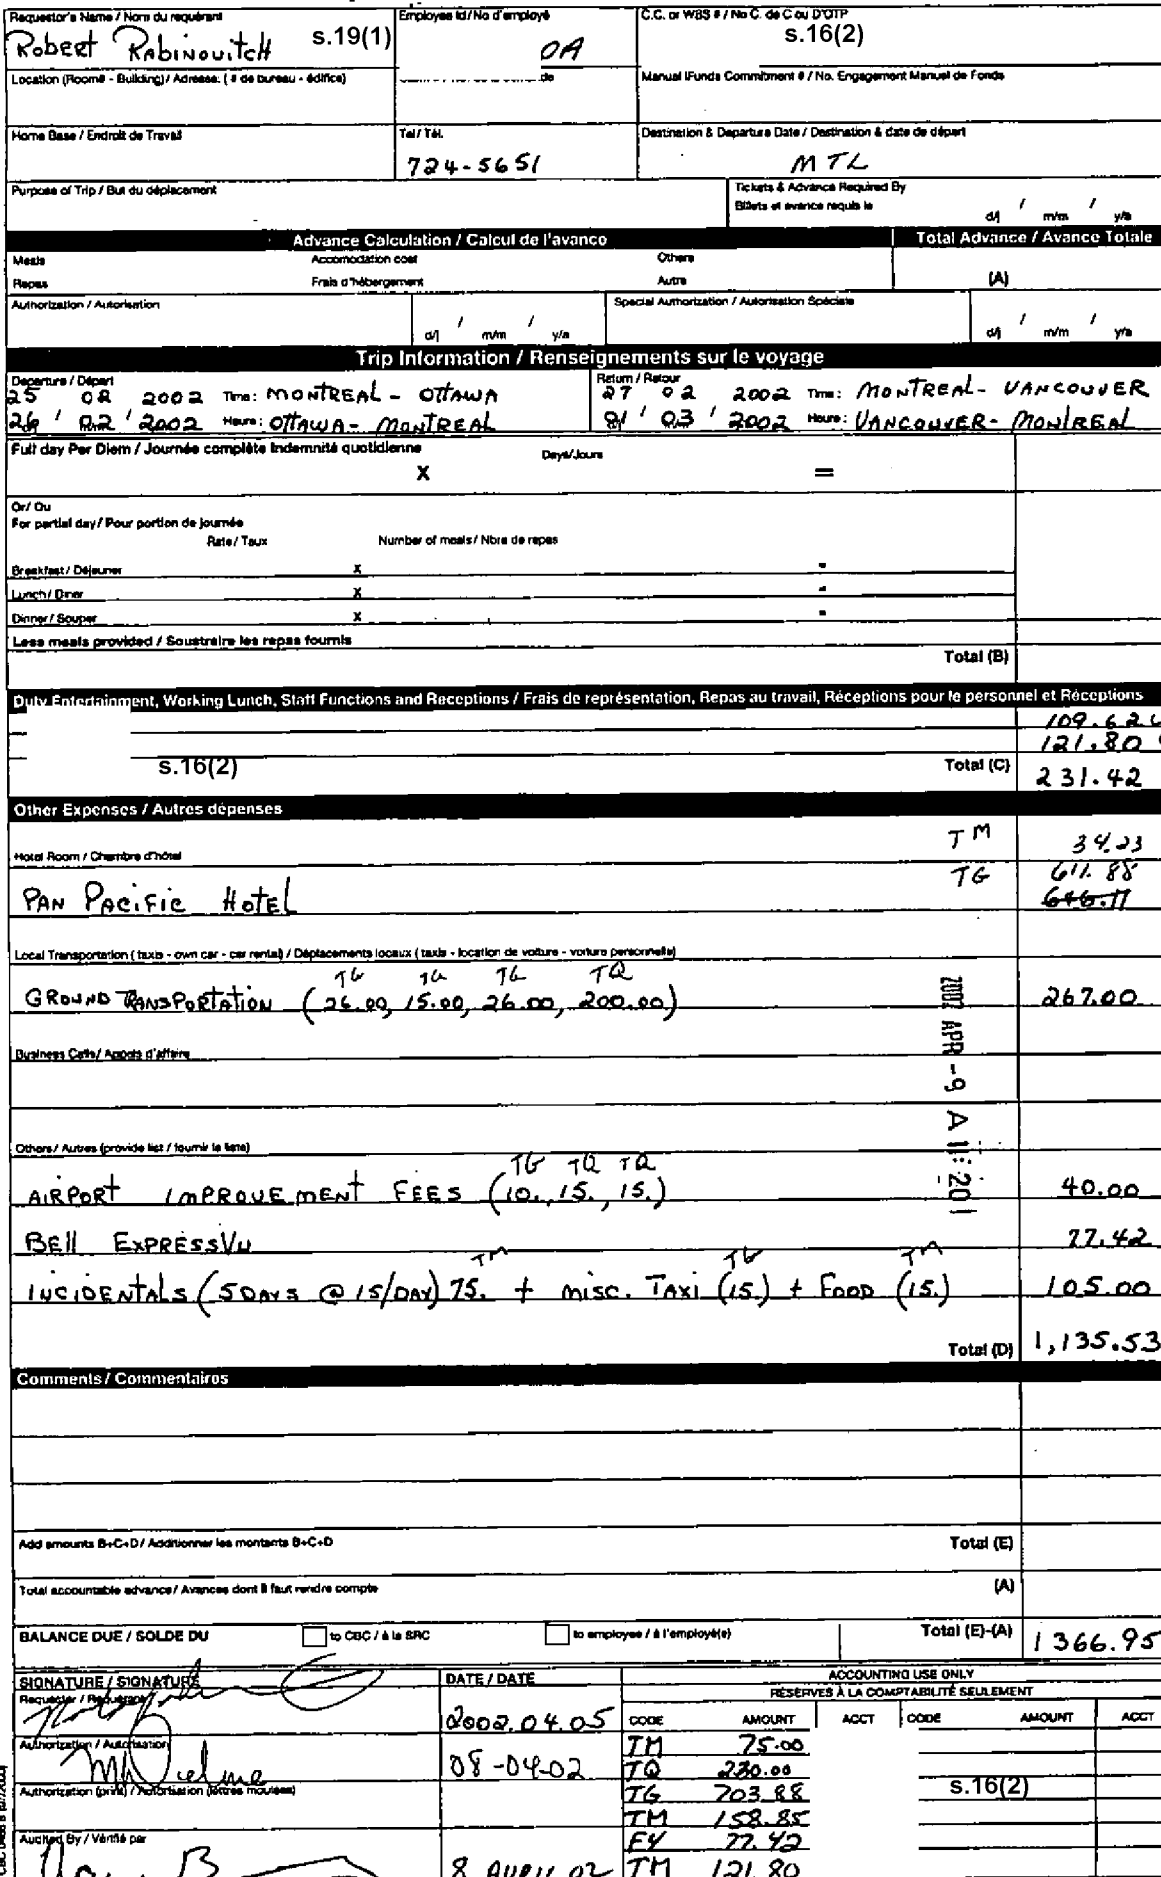 Requestor's Name / Nom du requérant
Robert Rabinovitch
s.19(1)
Employee Id/No d'employé
OA
C.C. or WBS # / No C. de C ou D'OTP
s.16(2)
Location (Room# - Building)/ Adresse: ( # de bureau - édifice)
Manual lFunds Commitment # / No. Engagement Manuel de Fonds
Home Base / Endroit de Travail
Tel / Tél.
724-5651
Destination & Departure Date / Destination & date de départ
MTL
Purpose of Trip / But du déplacement
Tickets & Advance Required By
Billets et avance requis le
d/j / m/m / y/a
Advance Calculation / Calcul de l'avance
Total Advance / Avance Totale
Meals Accomodation cost Others
Repas Frais d'hébergement Autre (A)
Authorization / Autorisation
d/j / m/m / y/a
Special Authorization / Autorisation Spéciale
d/j / m/m / y/a
Trip Information / Renseignements sur le voyage
Departure / Départ
25 02 2002 Time: MONTREAL - OTTAWA
26 / 02 / 2002 Heure: OTTAWA - MONTREAL
Return / Retour
27 02 2002 Time: MONTREAL - VANCOUVER
01 / 03 / 2002 Heure: VANCOUVER - MONTREAL
Full day Per Diem / Journée complète Indemnité quotidienne Days/Jours
X =
Or/ Ou
For partial day / Pour portion de journée
Rate / Taux Number of meals / Nbre de repas
Breakfast / Déjeuner x =
Lunch / Diner x =
Dinner / Souper x =
Less meals provided / Soustraire les repas fournis
Total (B)
Duty Entertainment, Working Lunch, Staff Functions and Receptions / Frais de représentation, Repas au travail, Réceptions pour le personnel et Réceptions
109.62
121.80
s.16(2)
Total (C) 231.42
Other Expenses / Autres dépenses
TM 34.23
Hotel Room / Chambre d'hôtel
TG 611.88
PAN PACIFIC HOTEL 646.11
Local Transportation ( taxis - own car - car rental) / Déplacements locaux ( taxis - location de voiture - voiture personnelle)
TG TG TG TQ
GROUND TRANSPORTATION (26.00, 15.00, 26.00, 200.00) 267.00
2002 APR -9 A 11: 20
Business Calls / Appels d'affaire
Others / Autres (provide list / fournir la liste)
TG TQ TQ
AIRPORT IMPROVEMENT FEES (10., 15., 15.) 40.00
BELL EXPRESSVU 77.42
TM TG TM
INCIDENTALS (5 DAYS @ 15/DAY) 75. + MISC. TAXI (15.) + FOOD (15.) 105.00
Total (D) 1,135.53
Comments / Commentaires
Add amounts B+C+D / Additionner les montants B+C+D
Total (E)
Total accountable advance / Avances dont il faut rendre compte
(A)
BALANCE DUE / SOLDE DU
to CBC / à la SRC
to employee / à l'employé(e)
Total (E)-(A) 1366.95
SIGNATURE / SIGNATURE
DATE / DATE
ACCOUNTING USE ONLY
RÉSERVÉS À LA COMPTABILITÉ SEULEMENT
Requester / Requérant
2002.04.05
CODE AMOUNT ACCT CODE AMOUNT ACCT
TM 75.00
Authorization / Autorisation
08-04-02
TQ 230.00
Authorization (print) / Autorisation (lettres moulées)
TG 703.88
s.16(2)
TM 158.85
Audited By / Vérifié par
FY 77.42
8 AVRIL 02
TM 121.80